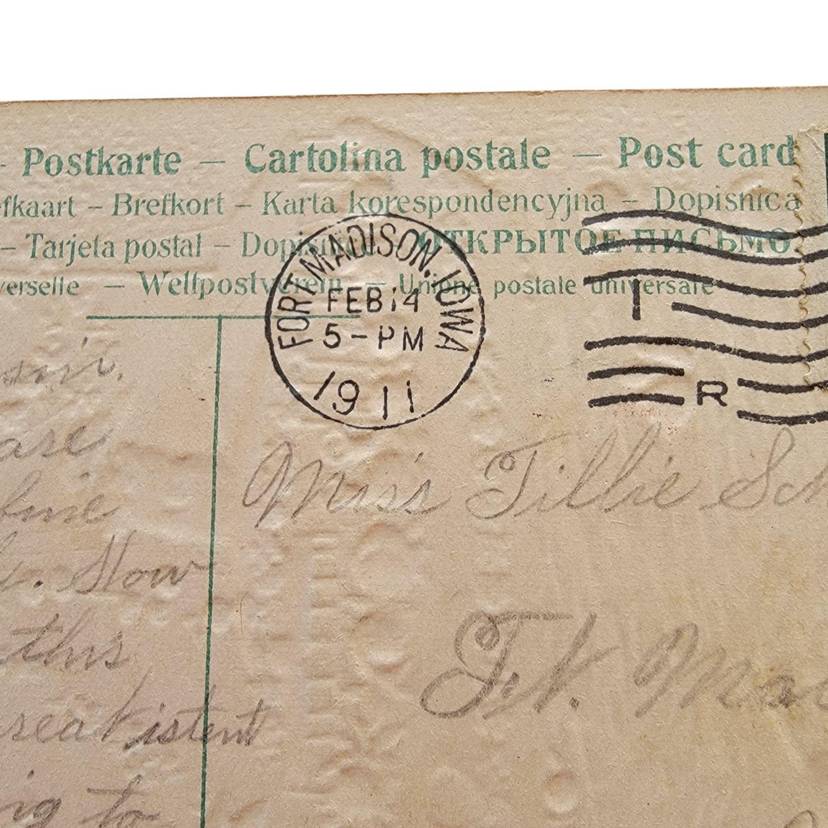 Postkarte – Cartolina postale – Post card
efkaart – Brefkort – Karta korespondencyjna – Dopisnica
– Tarjeta postal – ОТКРЫТОЕ ПИСЬМО.
verselle – Weltpostverein – Unione postale universale
FORT MADISON, IOWA
FEB 14
5-PM
1911
I
R
are
fine
How
this
ing to
Miss Tillie Sch
Ft. Mad